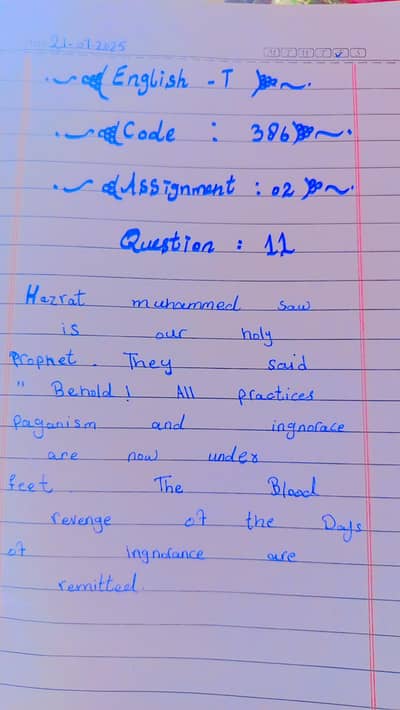 21-07-2025
M T W T F S
English - T
Code : 386
Assignment : 02
Question : 11
Hazrat muhammed saw
is our holy
prophet. They said
" Behold! All practices
paganism and ingnorace
are now under
feet. The Blood
revenge of the Days
of ingnorance are
remitted.